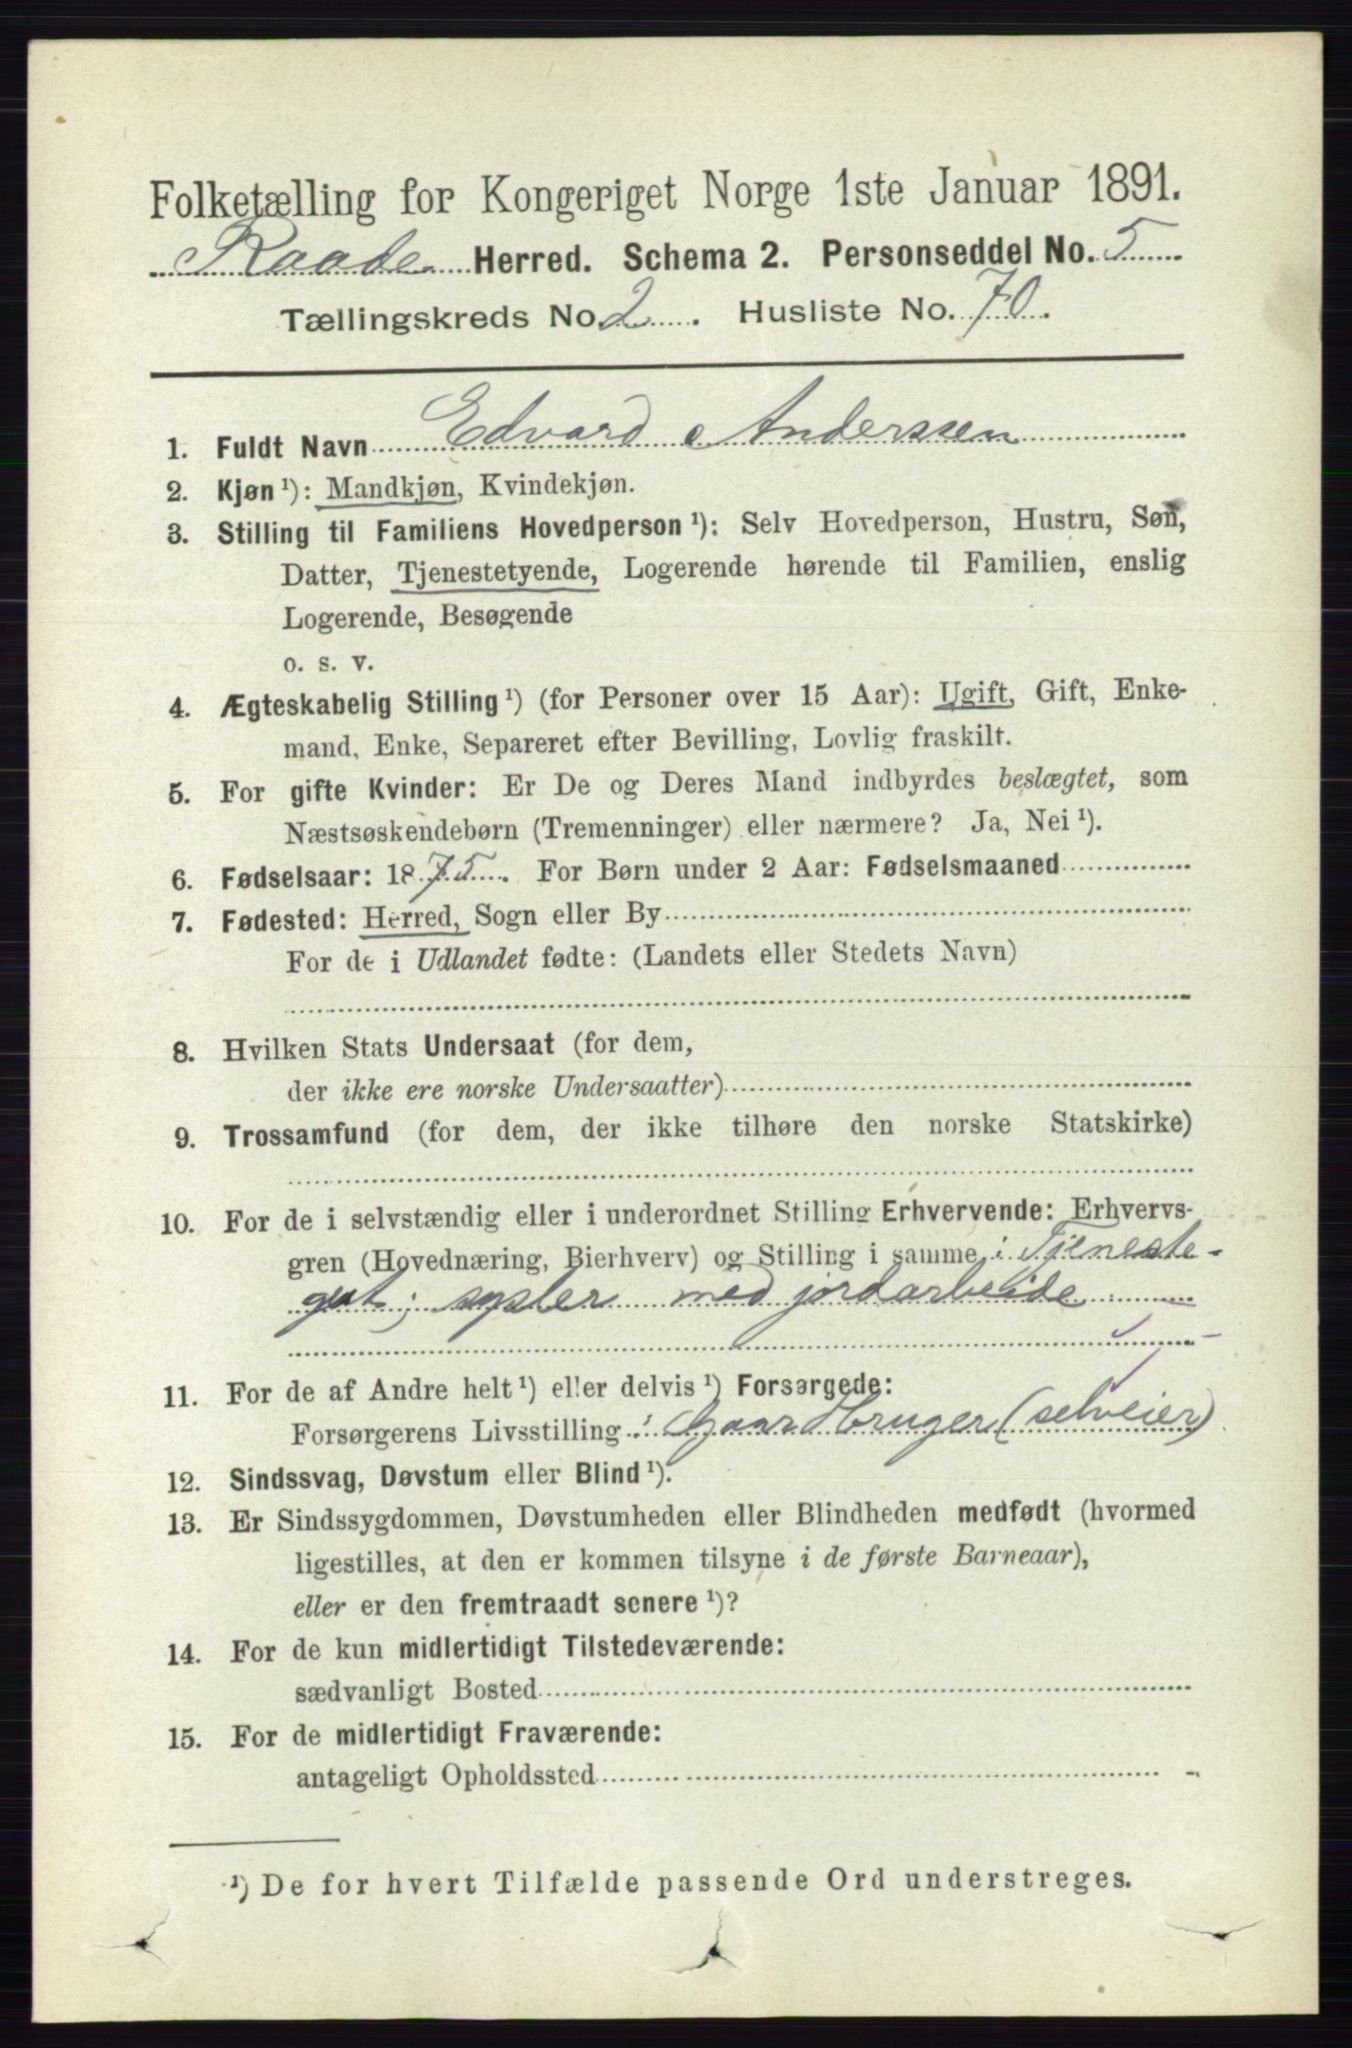 Folketælling for Kongeriget Norge 1ste Januar 1891.
Raade Herred. Schema 2. Personseddel No. 5
Tællingskreds No. 2. Husliste No. 70.
1. Fuldt Navn Edvard Anderssen
2. Kjøn¹): Mandkjøn, Kvindekjøn.
3. Stilling til Familiens Hovedperson¹): Selv Hovedperson, Hustru, Søn,
Datter, Tjenestetyende, Logerende hørende til Familien, enslig
Logerende, Besøgende
o. s. v.
4. Ægteskabelig Stilling¹) (for Personer over 15 Aar): Ugift, Gift, Enke-
mand, Enke, Separeret efter Bevilling, Lovlig fraskilt.
5. For gifte Kvinder: Er De og Deres Mand indbyrdes beslægtet, som
Næstsøskendebørn (Tremenninger) eller nærmere? Ja, Nei¹).
6. Fødselsaar: 1875. For Børn under 2 Aar: Fødselsmaaned
7. Fødested: Herred, Sogn eller By
For de i Udlandet fødte: (Landets eller Stedets Navn)
8. Hvilken Stats Undersaat (for dem,
der ikke ere norske Undersaatter)
9. Trossamfund (for dem, der ikke tilhøre den norske Statskirke)
10. For de i selvstændig eller i underordnet Stilling Erhvervende: Erhvervs-
gren (Hovednæring, Bierhverv) og Stilling i samme: Tjeneste-
gut; sysler med jordarbeide
11. For de af Andre helt¹) eller delvis¹) Forsørgede:
Forsørgerens Livsstilling: Gaardbruger (selveier)
12. Sindssvag, Døvstum eller Blind¹).
13. Er Sindssygdommen, Døvstumheden eller Blindheden medfødt (hvormed
ligestilles, at den er kommen tilsyne i de første Barneaar),
eller er den fremtraadt senere¹)?
14. For de kun midlertidigt Tilstedeværende:
sædvanligt Bosted
15. For de midlertidigt Fraværende:
antageligt Opholdssted
¹) De for hvert Tilfælde passende Ord understreges.